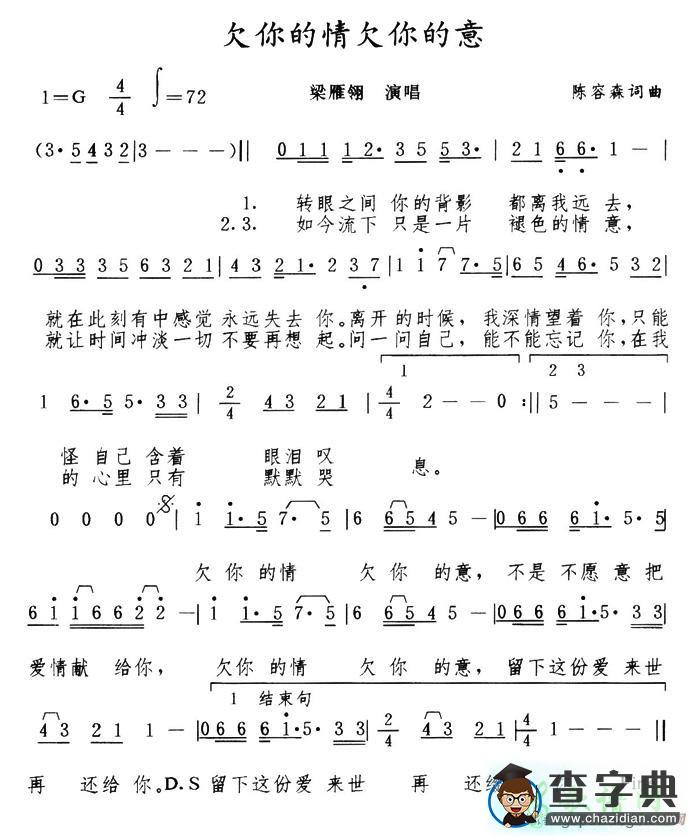 欠你的情欠你的意
1=G 4/4 ∫=72 梁雁翎 演唱 陈容森词曲
(3· 5 4 3 2 | 3 - - -) || 0 1 1 1 2· 3 5 5 3· | 2 1 6 6· 1 - |
1. 转眼之间 你的背影 都离我远 去,
2.3. 如今流下 只是一片 褪色的情 意,
0 3 3 3 5 6 3 2 1 | 4 3 2 1· 2 3 7 | 1 1 7 7· 5 | 6 5 4 6· 5 3 2 |
就在此刻有中感觉 永远失去 你。离开的时候, 我深情望着 你,只能
就让时间冲淡一切 不要再想 起。问一问自己, 能不能忘记 你,在我
1 2 3
1 6· 5 5· 3 3 | 2/4 4 3 2 1 | 4/4 2 - - 0 :|| 5 - - - |
怪 自己 含着 眼泪 叹 息。
的 心里 只有 默默 哭
0 0 0 0 | 1 1· 5 7· 5 | 6 6 5 4 5 - | 0 6 6 6 1· 5· 5 |
欠 你 的情 欠 你 的意, 不是 不愿 意 把
6 1 1 6 6 2 2· | 1 1· 5 7· 5 | 6 6 5 4 5 - | 0 6 6 6 1· 5· 3 3 |
爱情献 给你, 欠 你 的情 欠 你 的意, 留下这份爱 来世
1 结束句
4 3 2 1 1 - | 0 6 6 6 1· 5· 3 3 | 2/4 4 3 2 1 | 4/4 1 - - ||
再 还给 你。D.S 留下这份爱 来世 再 还给
查字典
www.chazidian.com